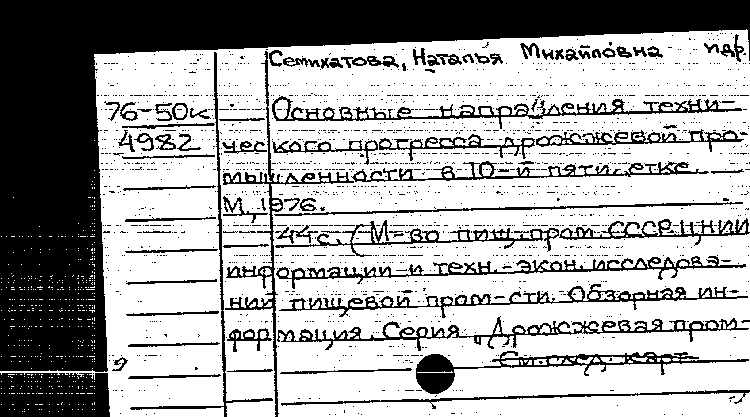 Семихатова, Наталья Михайловна и др.
76-50к Основные направления техни-
4982 ческого прогресса дрожжевой про-
мышленности в 10-й пятилетке.
М., 1976.
44 с. (М-во пищ. пром. СССР. ЦНИИ
информации и техн.-экон. исследова-
ний пищевой пром-сти. Обзорная ин-
формация. Серия „Дрожжевая пром-
См. след. карт.